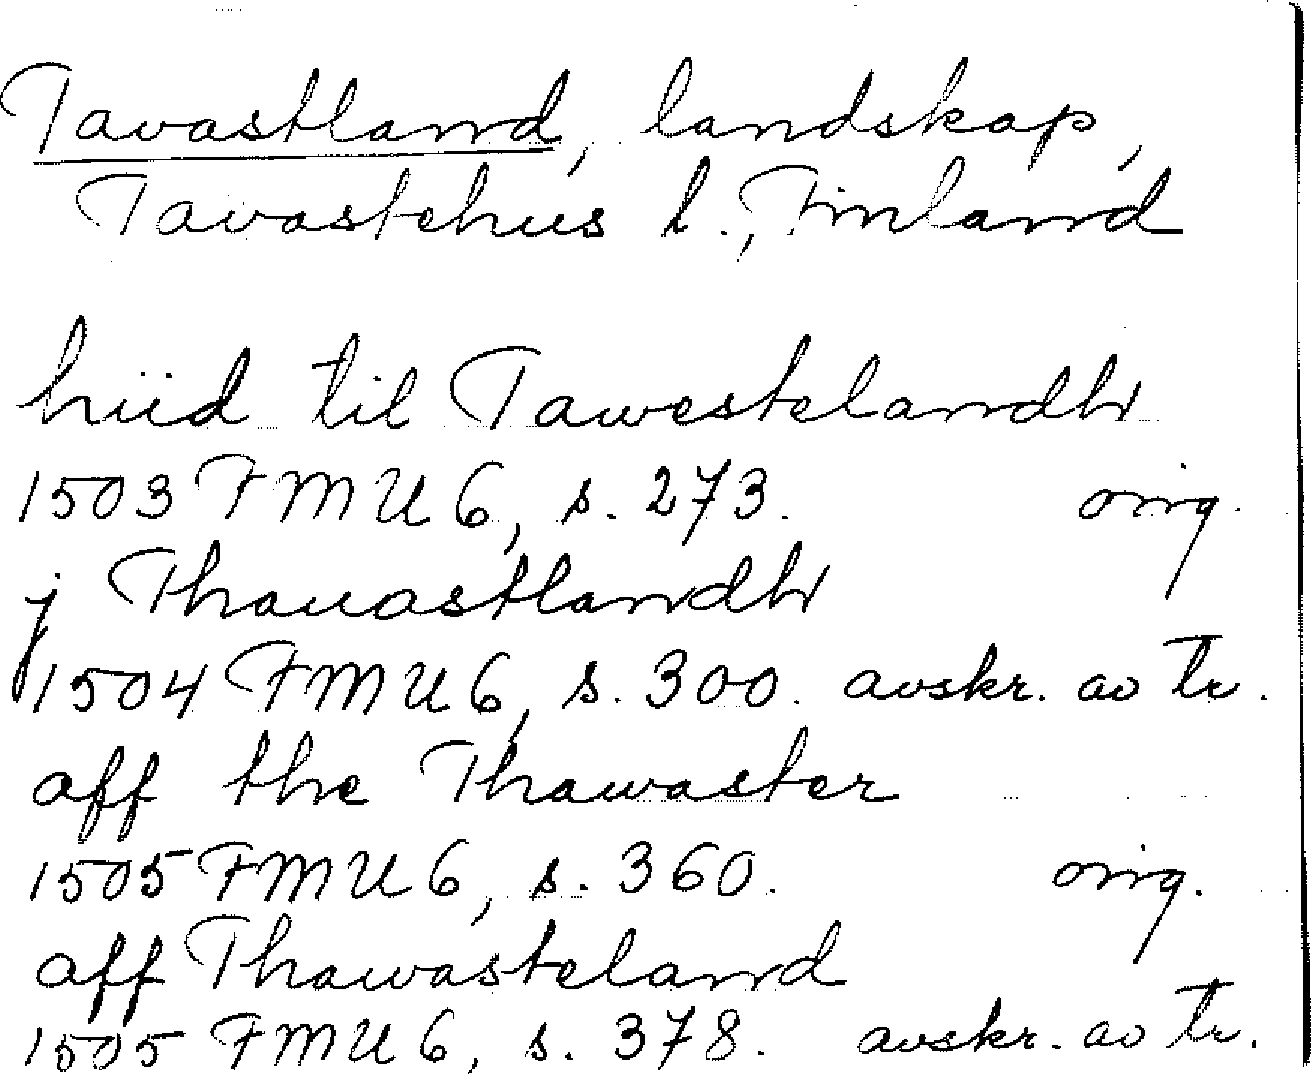 Tavastland, landskap,
Tavastehus l., Finland
hiid til Tawestelandh
1503 FMU 6, s. 273. orig.
j Thauastlandh
1504 FMU 6, s. 300. avskr. av tr.
aff the Thawaster
1505 FMU 6, s. 360. orig.
aff Thawasteland
1505 FMU 6, s. 378. avskr. av tr.